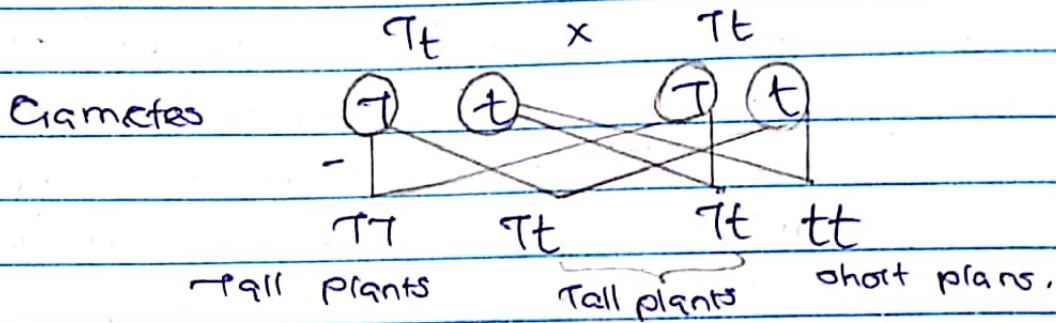 Tt × Tt
Gametes T t T t
TT Tt Tt tt
Tall plants Tall plants short plans.